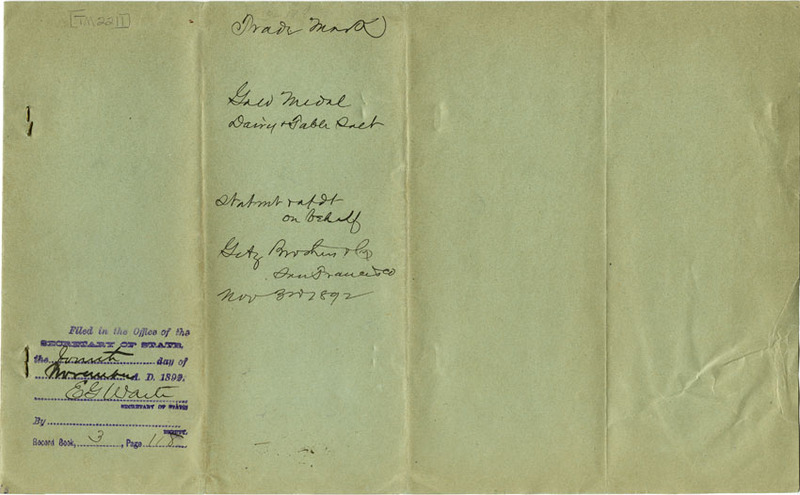 TM2211
Trade Mark
Gold Medal
Dairy & Table Salt
Statmt & afdt
on behalf
Getz Brothers & Co
San Francisco
Nov 3rd 1892
Filed in the Office of the
SECRETARY OF STATE
the fourth day of
November A. D. 1892.
E G Waite
SECRETARY OF STATE
By
DEPUTY.
Record Book, 3, Page